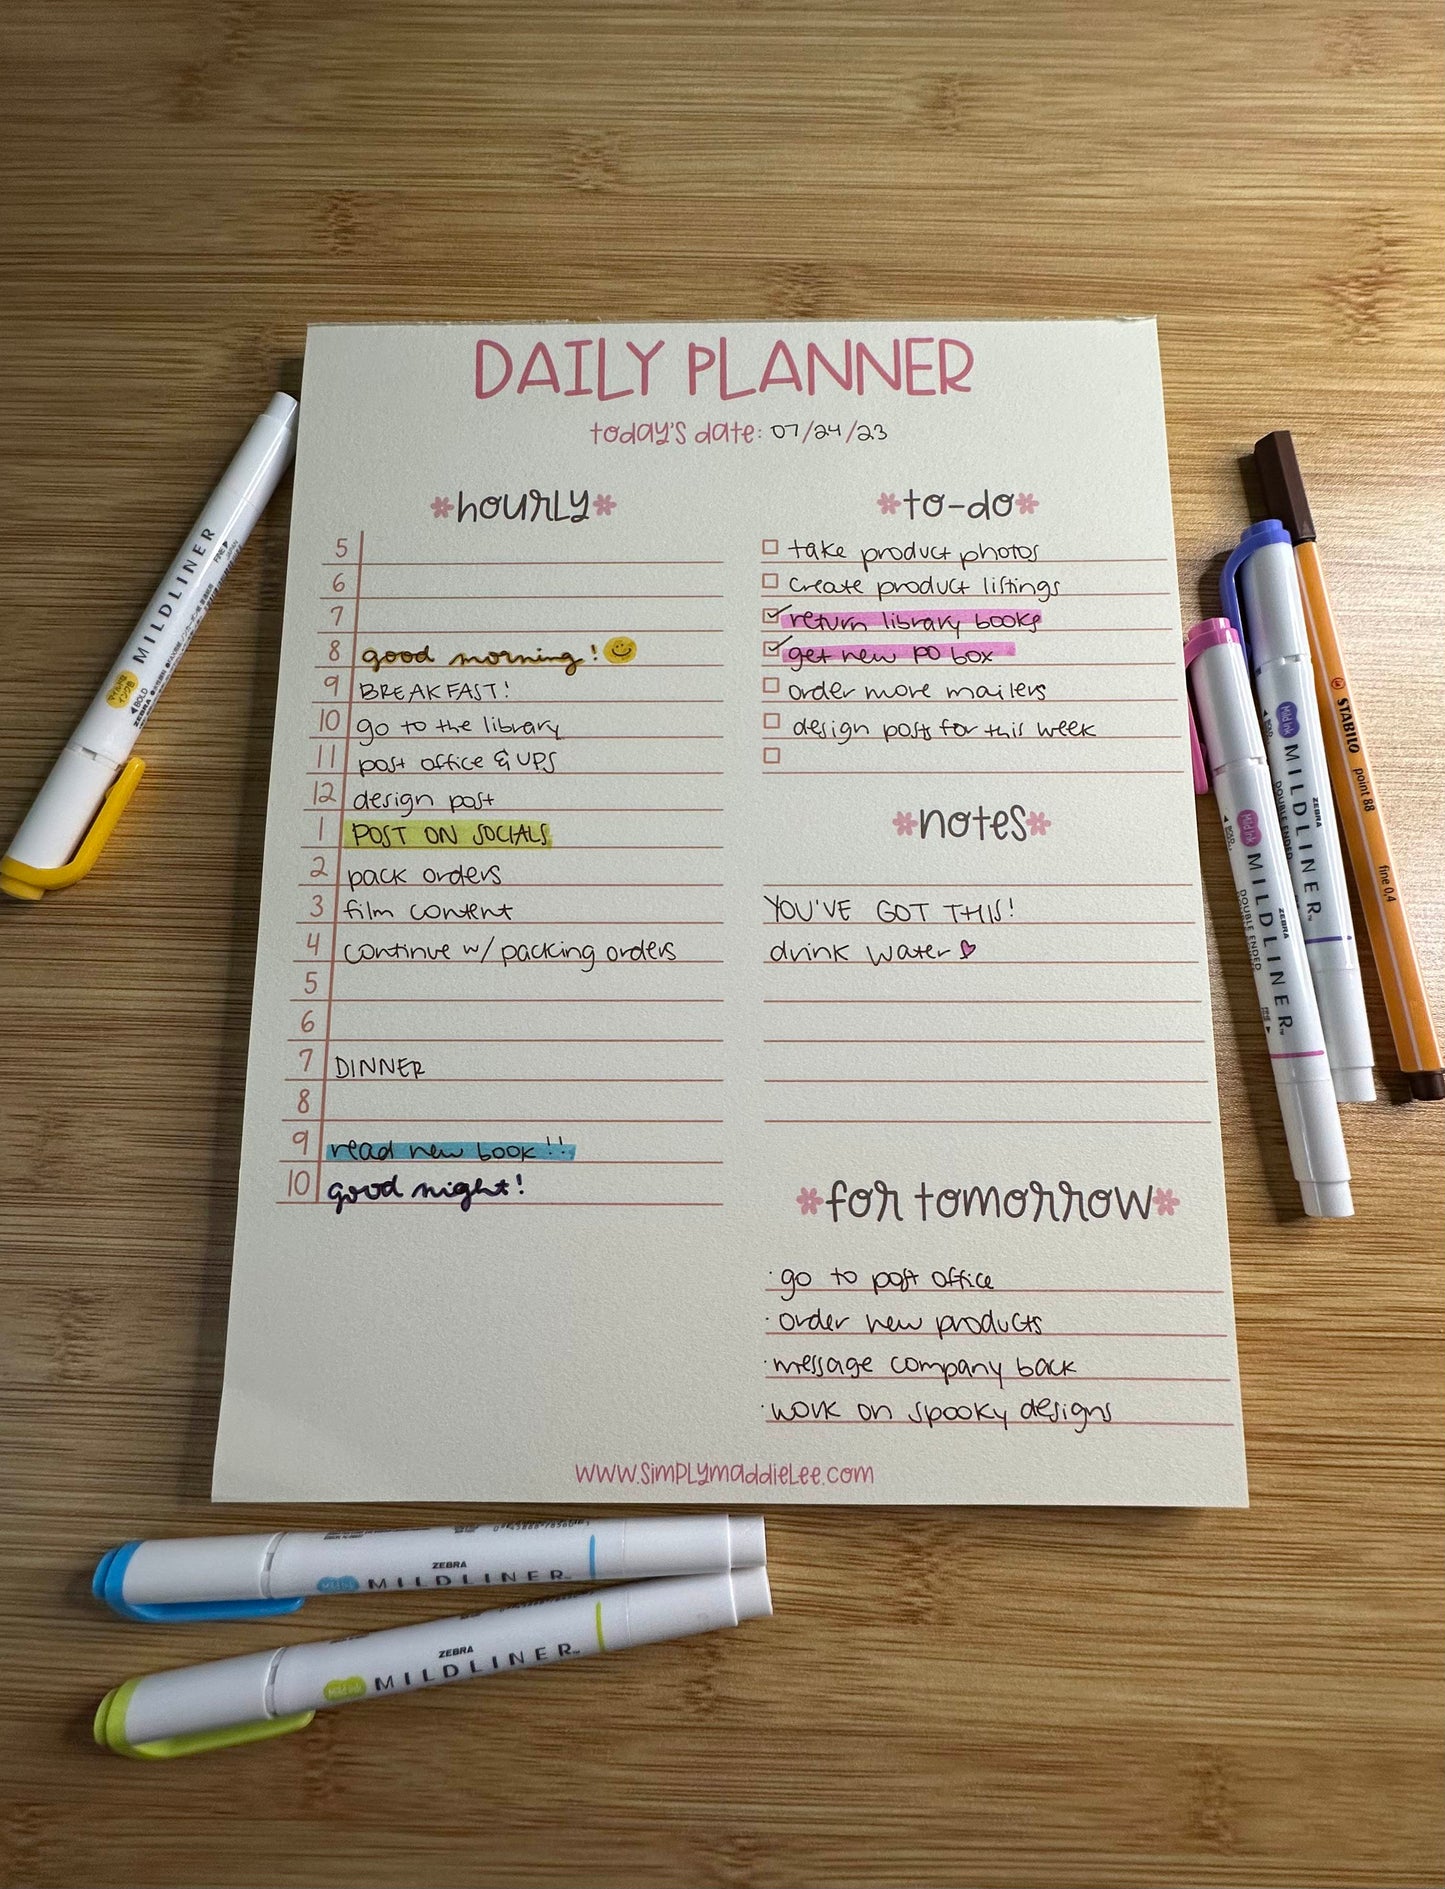 DAILY PLANNER
today's date: 07/24/23
hourly
5
6
7
8 good morning!
9 BREAKFAST!
10 go to the library
11 post office & UPS
12 design post
1 POST ON SOCIALS
2 pack orders
3 film content
4 continue w/ packing orders
5
6
7 DINNER
8
9 read new book!!
10 good night!
to-do
take product photos
create product listings
return library books
get new PO box
order more mailers
design posts for this week
notes
YOU'VE GOT THIS!
drink water
for tomorrow
· go to post office
· order new products
· message company back
· work on spooky designs
www.simplymaddielee.com
MILDLINER
FINE
BOLD
ZEBRA
JAPAN
Mild ink
ZEBRA
MILDLINER
DOUBLE ENDED
Mild ink
ZEBRA
MILDLINER™
DOUBLE ENDED
FINE
STABILO point 88 fine 0,4
ZEBRA
Mild ink MILDLINER™
ZEBRA
Mild ink MILDLINER™